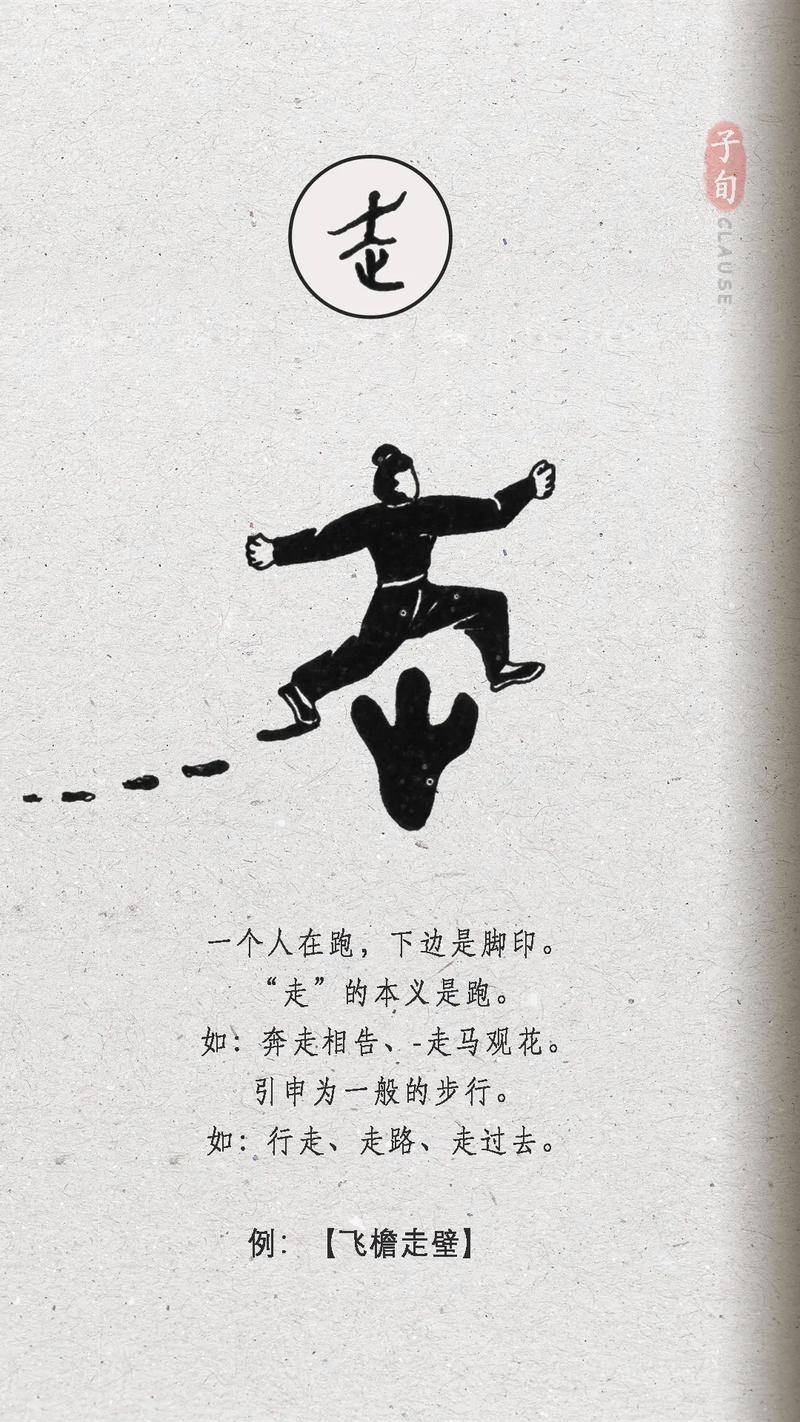 走
子旬
CLAUSE
一个人在跑，下边是脚印。
“走”的本义是跑。
如：奔走相告、-走马观花。
引申为一般的步行。
如：行走、走路、走过去。
例：【飞檐走壁】